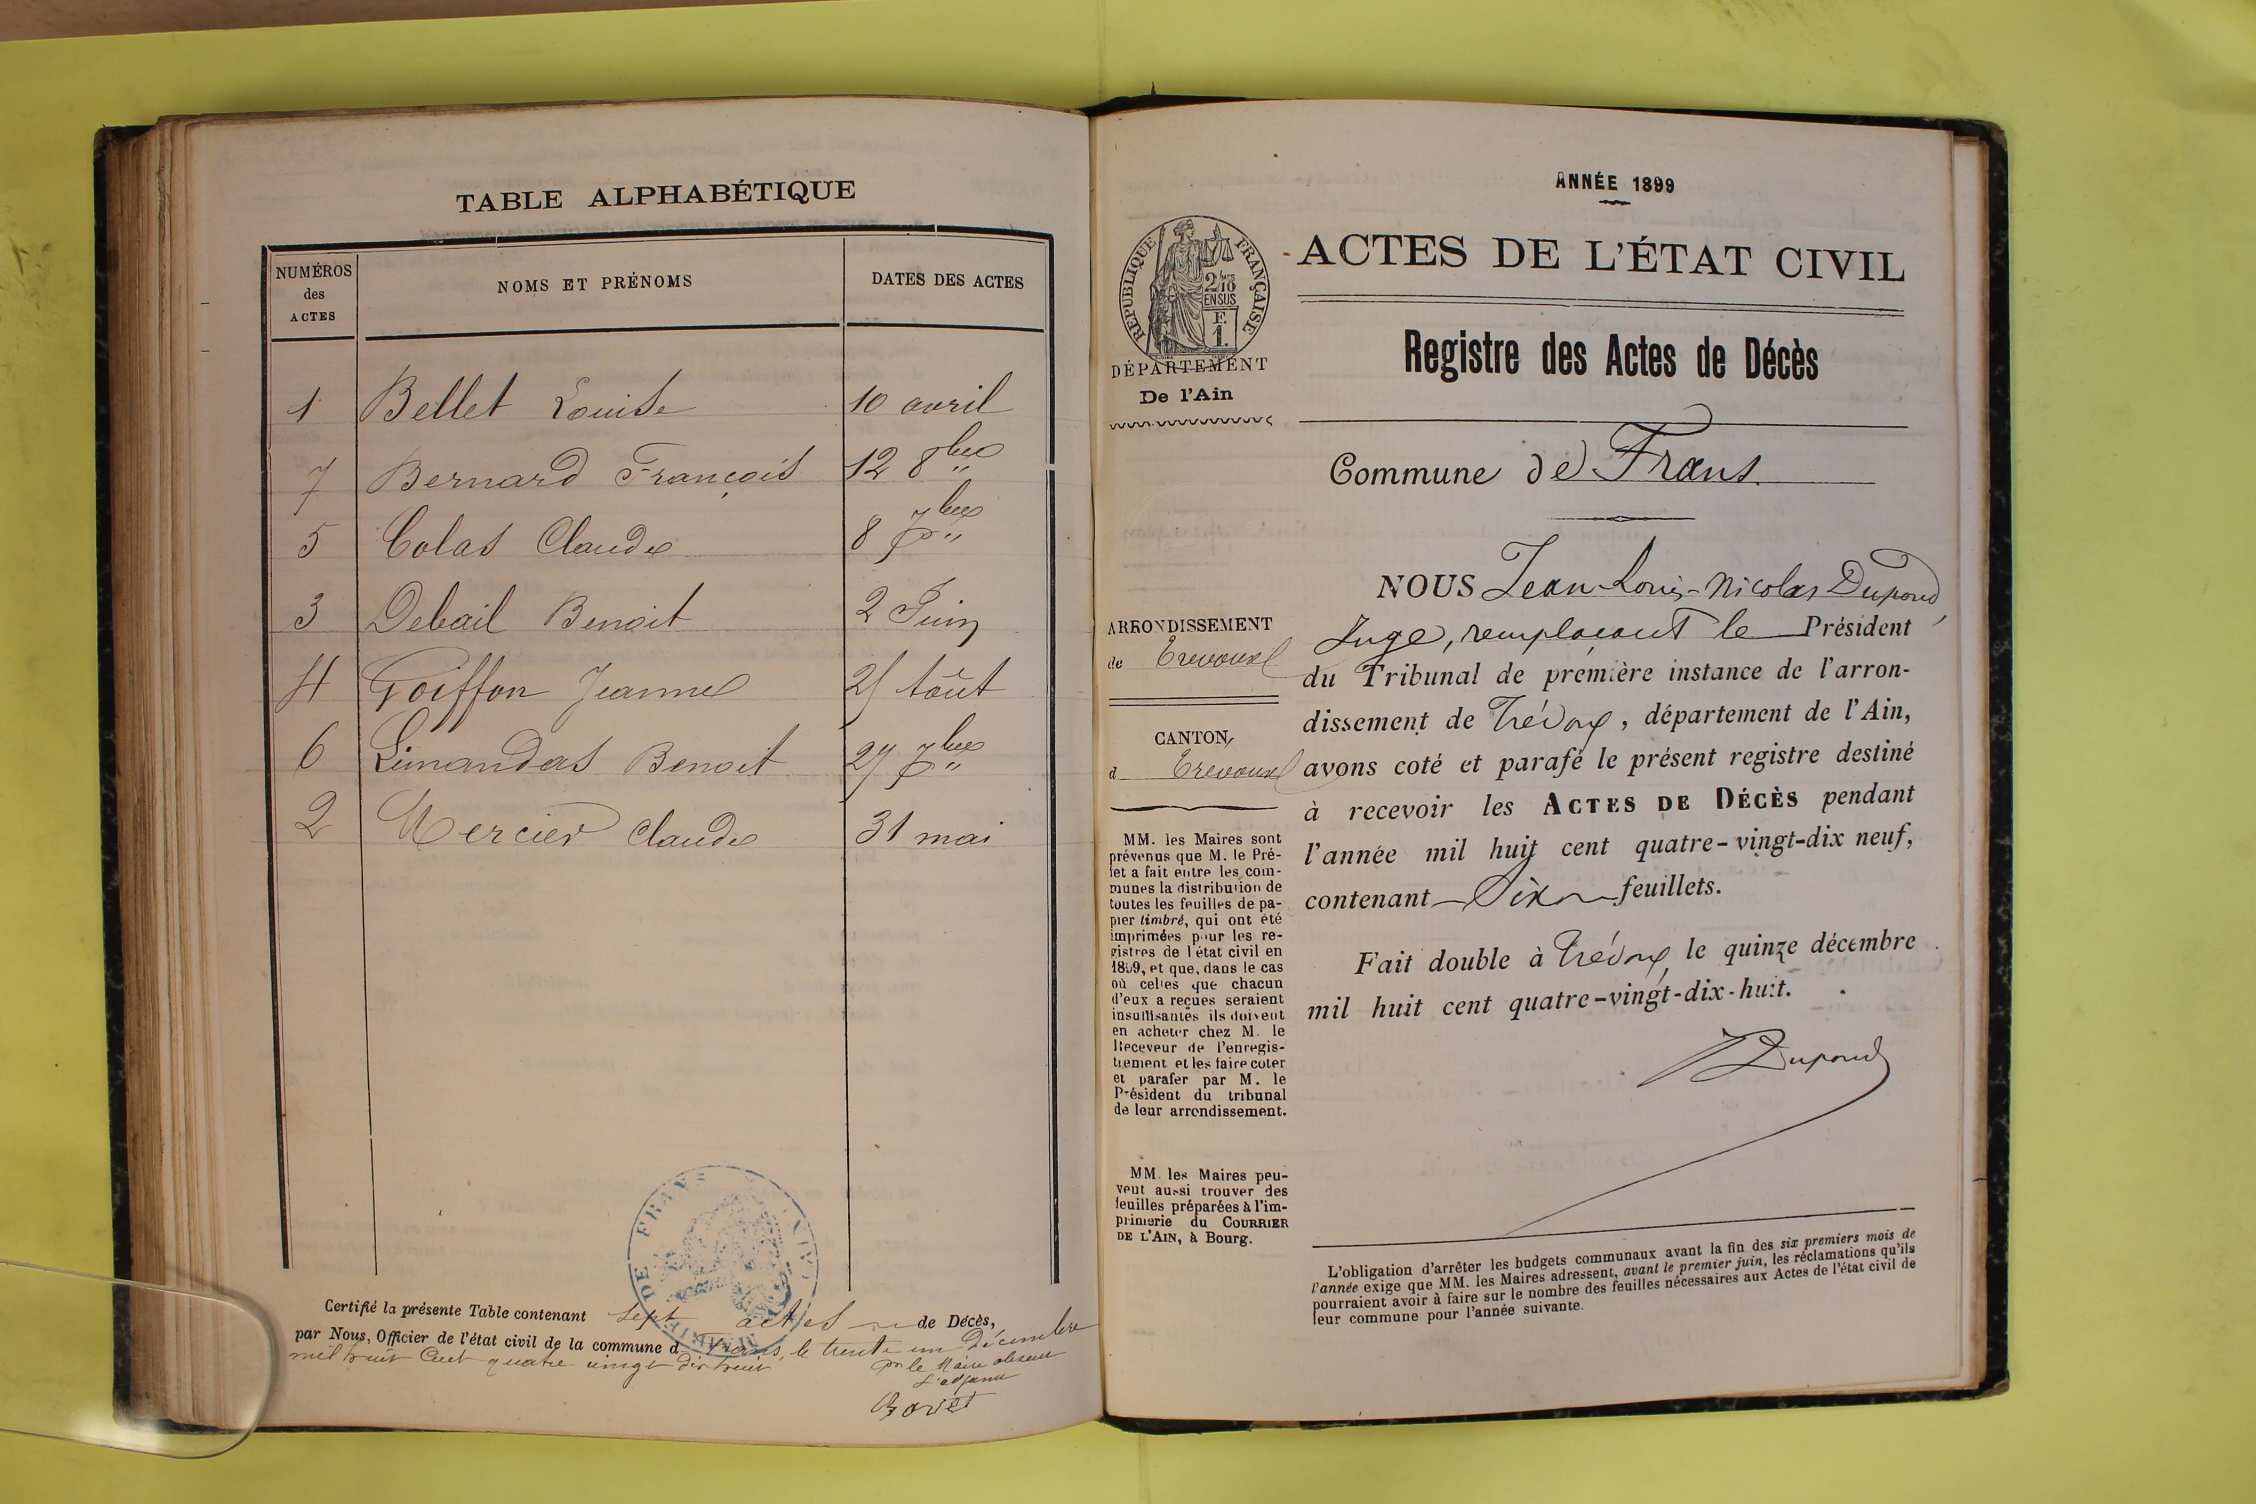 TABLE ALPHABÉTIQUE
NUMÉROS des ACTES | NOMS ET PRÉNOMS | DATES DES ACTES
1 Bellet Louise 10 avril
7 Bernard François 12 8bre
5 Colas Claude 8 7bre
3 Debail Benoit 2 Juin
4 Goiffon Jeanne 25 Aôut
6 Limandas Benoit 27 7bre
2 Mercier Claude 31 mai
MAIRIE DE FRANS (AIN)
Certifié la présente Table contenant sept actes de Décès,
par Nous, Officier de l'état civil de la commune d Frans, le trente un Décembre
mil huit Cent quatre vingt dix huit
pr le Maire absent
L'adjoint
Bovet
ANNÉE 1899
RÉPUBLIQUE FRANÇAISE
2/10 EN SUS
F.
1.
DÉPARTEMENT
De l'Ain
ARRONDISSEMENT
de Trevoux
CANTON
d Trevoux
MM. les Maires sont
prévenus que M. le Pré-
fet a fait entre les com-
munes la distribution de
toutes les feuilles de pa-
pier timbré, qui ont été
imprimées pour les re-
gistres de l'état civil en
1899, et que, dans le cas
où celles que chacun
d'eux a reçues seraient
insuffisantes ils doivent
en acheter chez M. le
Receveur de l'enregis-
trement et les faire coter
et parafer par M. le
Président du tribunal
de leur arrondissement.
MM. les Maires peu-
vent aussi trouver des
feuilles préparées à l'im-
primerie du COURRIER
DE L'AIN, à Bourg.
ACTES DE L'ÉTAT CIVIL
Registre des Actes de Décès
Commune de Frans.
NOUS Jean-Louis-Nicolas Dupond,
Juge, remplaçant le Président
du Tribunal de première instance de l'arron-
dissement de Trévoux, département de l'Ain,
avons coté et parafé le présent registre destiné
à recevoir les ACTES DE DÉCÈS pendant
l'année mil huit cent quatre-vingt-dix neuf,
contenant Six feuillets.
Fait double à Trévoux, le quinze décembre
mil huit cent quatre-vingt-dix-huit.
Dupond
L'obligation d'arrêter les budgets communaux avant la fin des six premiers mois de
l'année exige que MM. les Maires adressent, avant le premier juin, les réclamations qu'ils
pourraient avoir à faire sur le nombre des feuilles nécessaires aux Actes de l'état civil de
leur commune pour l'année suivante.